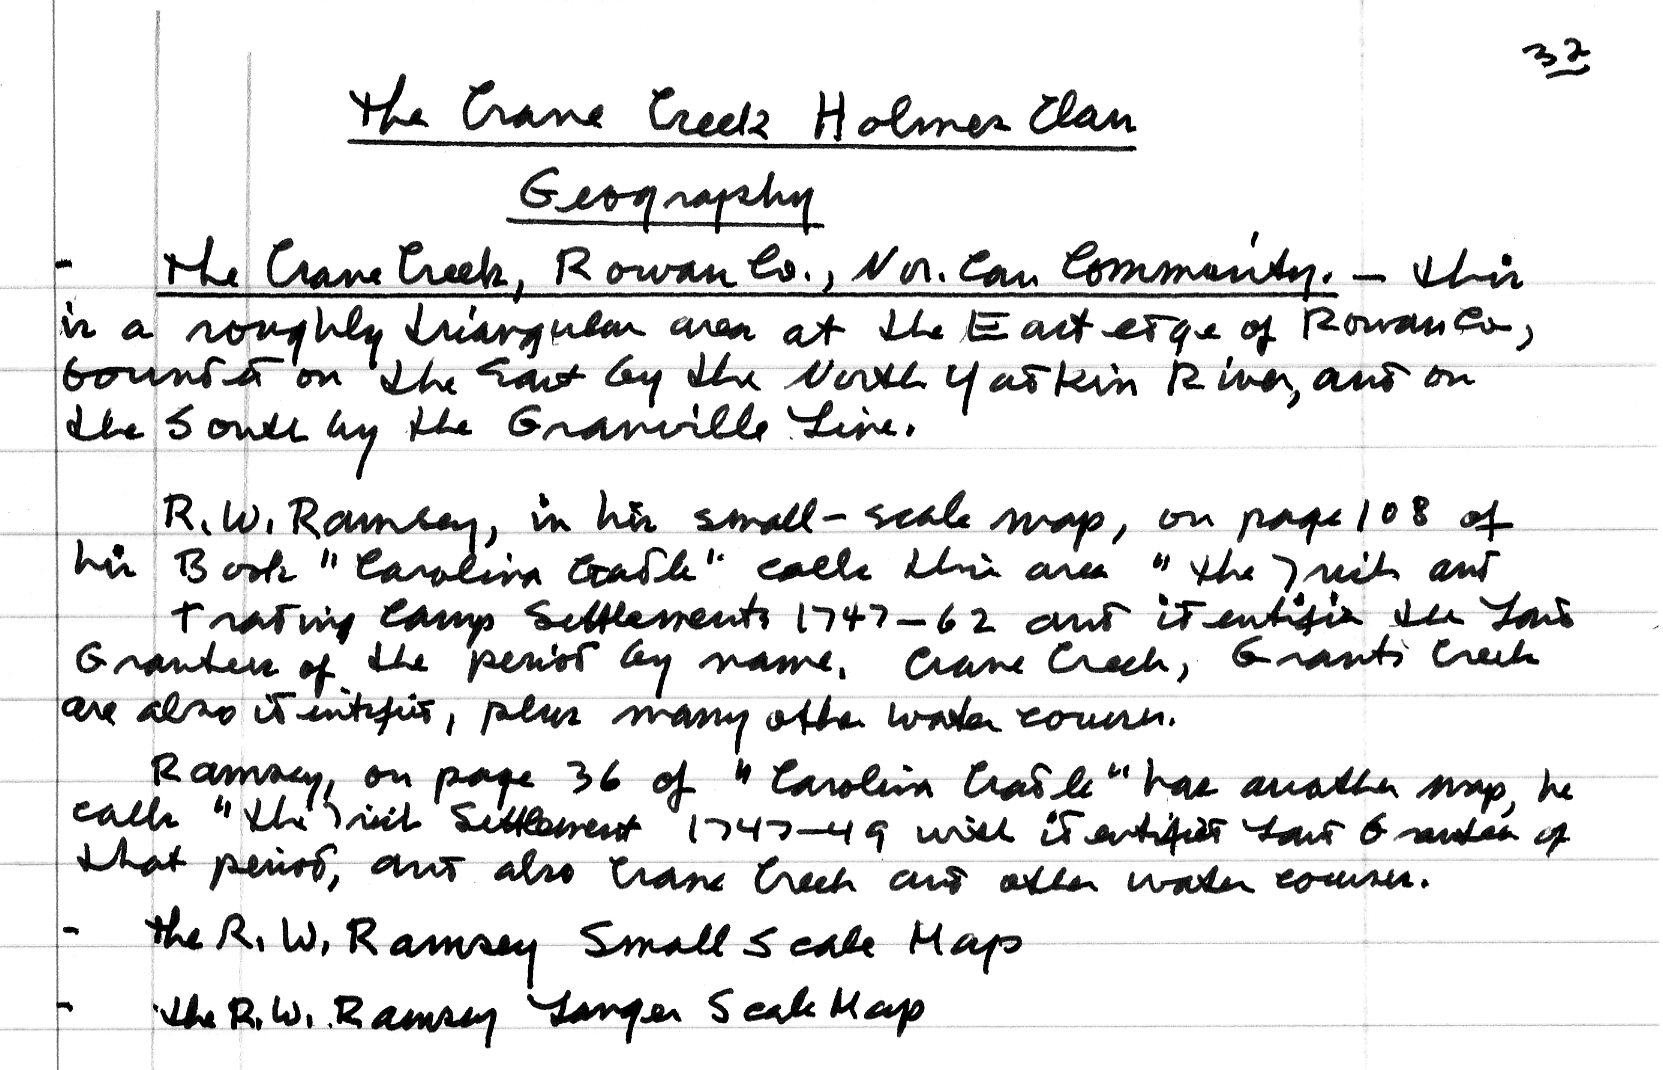 32
The Crane Creek Holmes Clan
Geography
- The Crane Creek, Rowan Co., Nor. Car. Community. - This
is a roughly triangular area at the East edge of Rowan Co,
bounded on the East by the North Yadkin River, and on
the South by the Granville Line.
R. W. Ramsey, in his small-scale map, on page 108 of
his Book "Carolina Cradle" calls this area "the Irish and
Trading Camp Settlements 1747-62 and identifies the Land
Grantees of the period by name. Crane Creek, Grants Creek
are also identified, plus many other water courses.
Ramsey, on page 36 of "Carolina Cradle" has another map, he
calls "the Irish Settlement 1747-49 with identified Land Grantees of
that period, and also Crane Creek and other water courses.
- The R. W. Ramsey Small Scale Map
- the R. W. Ramsey Larger Scale Map